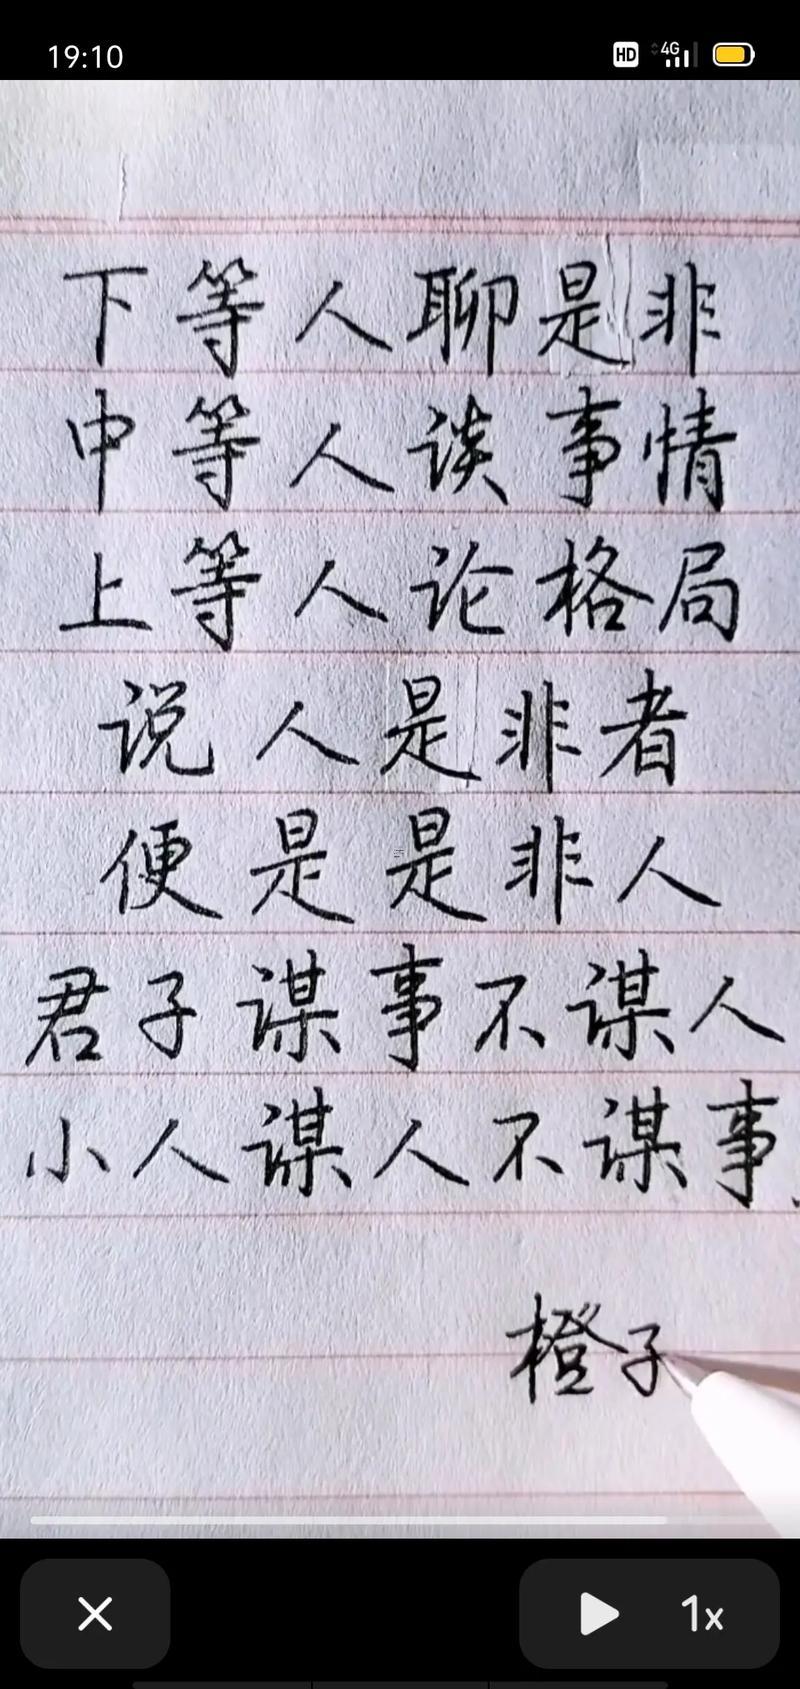 19:10 HD 4G
下等人聊是非
中等人谈事情
上等人论格局
说人是非者
便是是非人
君子谋事不谋人
小人谋人不谋事
橙子
1x